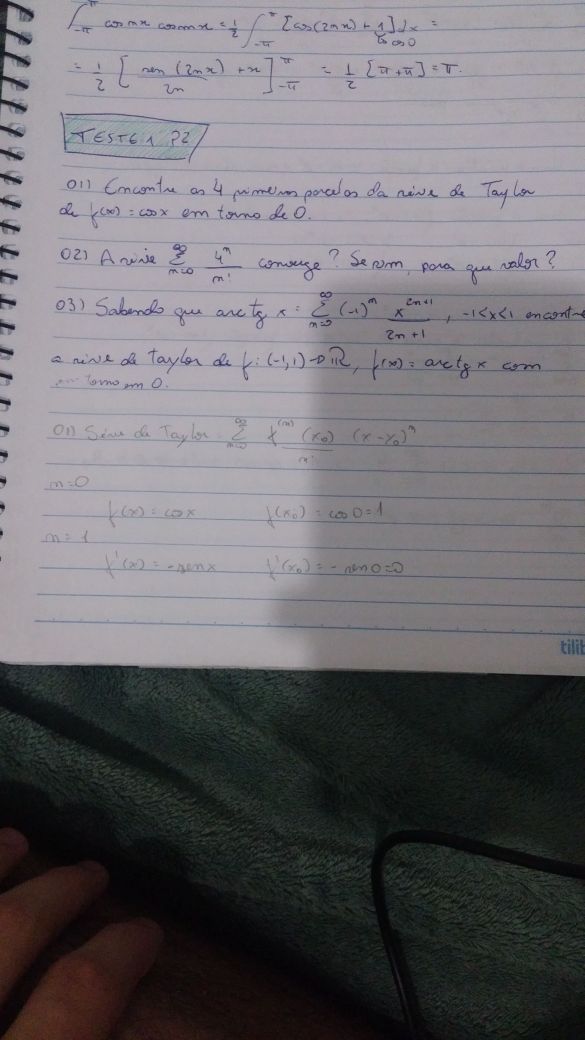 ∫_{-π}^{π} cos nx cos nx = 1/2 ∫_{-π}^{π} [cos(2nx) + 1] dx =
cos 0
= 1/2 [ sen (2nx)/2n + x ]_{-π}^{π} = 1/2 [π + π] = π.
TESTE 1 P2
01) Encontre as 4 primeiras parcelas da série de Taylor
de f(x) = cos x em torno de 0.
02) A série ∑_{n=0}^{∞} 4^n/n! converge? Se sim, para que valor?
03) Sabendo que arctg x = ∑_{n=0}^{∞} (-1)^n x^{2n+1}/2n+1, -1<x<1 encontre
a série de Taylor de f: (-1,1) → ℝ, f(x) = arctg x com
torno em 0.
01) Série de Taylor: ∑_{n=0}^{∞} f^{(n)}(x₀)/n! (x-x₀)^n
n=0
f(x) = cos x f(x₀) = cos 0 = 1
n=1
f'(x) = -sen x f'(x₀) = -sen 0 = 0
tilib